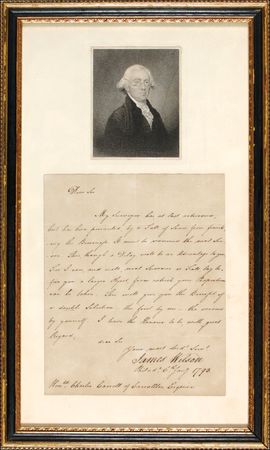 Dear Sir
My Surveyor has at last returned,
but has been prevented by a Fall of Snow from finish-
ing the Business. He must be resumed the next Sea-
son. This, though a Delay, will be an Advantage to you
for I can and will, next Summer or Fall,
you a larger Object from which your
can be taken. This will give you the Benefit of
a double Selection: the first by me — the second
by yourself. I have the Honour to be with great
Regard,
dear Sir
Your most obed. Serv.
James Wilson
Philad. 6th Jany 1793
Honble Charles Carroll of Carrollton Esquire